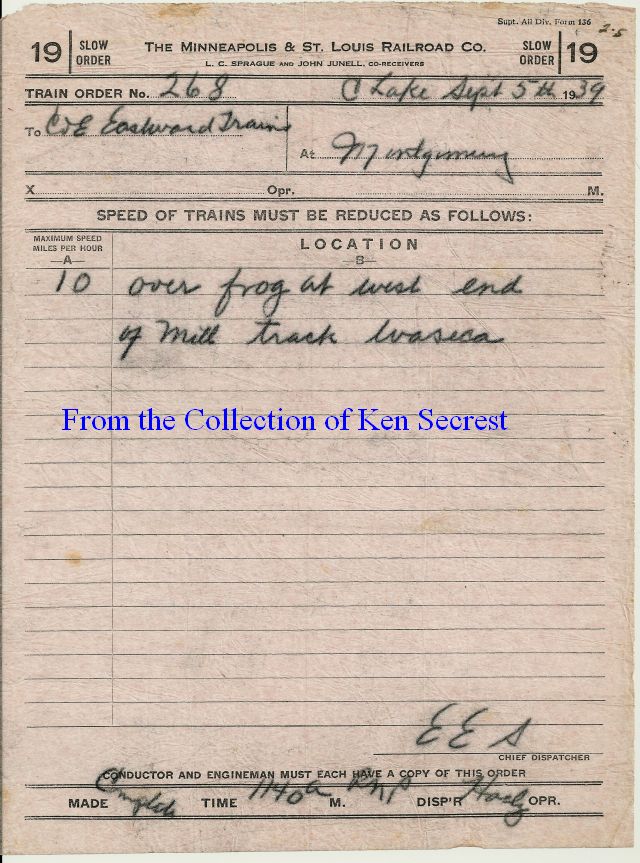 Supt. All Div. Form 136
2-5
19 SLOW ORDER THE MINNEAPOLIS & ST. LOUIS RAILROAD CO. SLOW ORDER 19
L. C. SPRAGUE AND JOHN JUNELL, CO-RECEIVERS
TRAIN ORDER No. 268 C Lake Sept 5th 1939
To C&E Eastward Trains At Montgomery
X Opr. M.
SPEED OF TRAINS MUST BE REDUCED AS FOLLOWS:
MAXIMUM SPEED MILES PER HOUR LOCATION
—A— —B—
10 over frog at west end
of Mill track Waseca
From the Collection of Ken Secrest
E E S
CHIEF DISPATCHER
CONDUCTOR AND ENGINEMAN MUST EACH HAVE A COPY OF THIS ORDER
MADE Complete TIME 1140a M. DISP'R OPR.